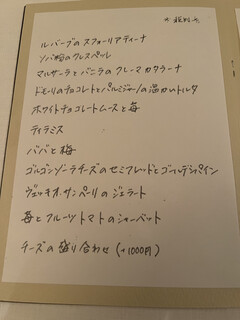 ルバーブのスフォーリアティーナ
ソバ粉のクレスペッレ
マルサーラとバニラのクレーマカタラーナ
ドモーリのチョコレートとパルジャーノの温かいトルタ
ホワイトチョコレートムースと苺
ティラミス
ババと梅
ゴルゴンゾーラチーズのセミフレッドとゴールデンパイン
ヴェッキオサンペーリのジェラート
苺とフルーツトマトのシャーベット
チーズの盛り合わせ (+1000円)